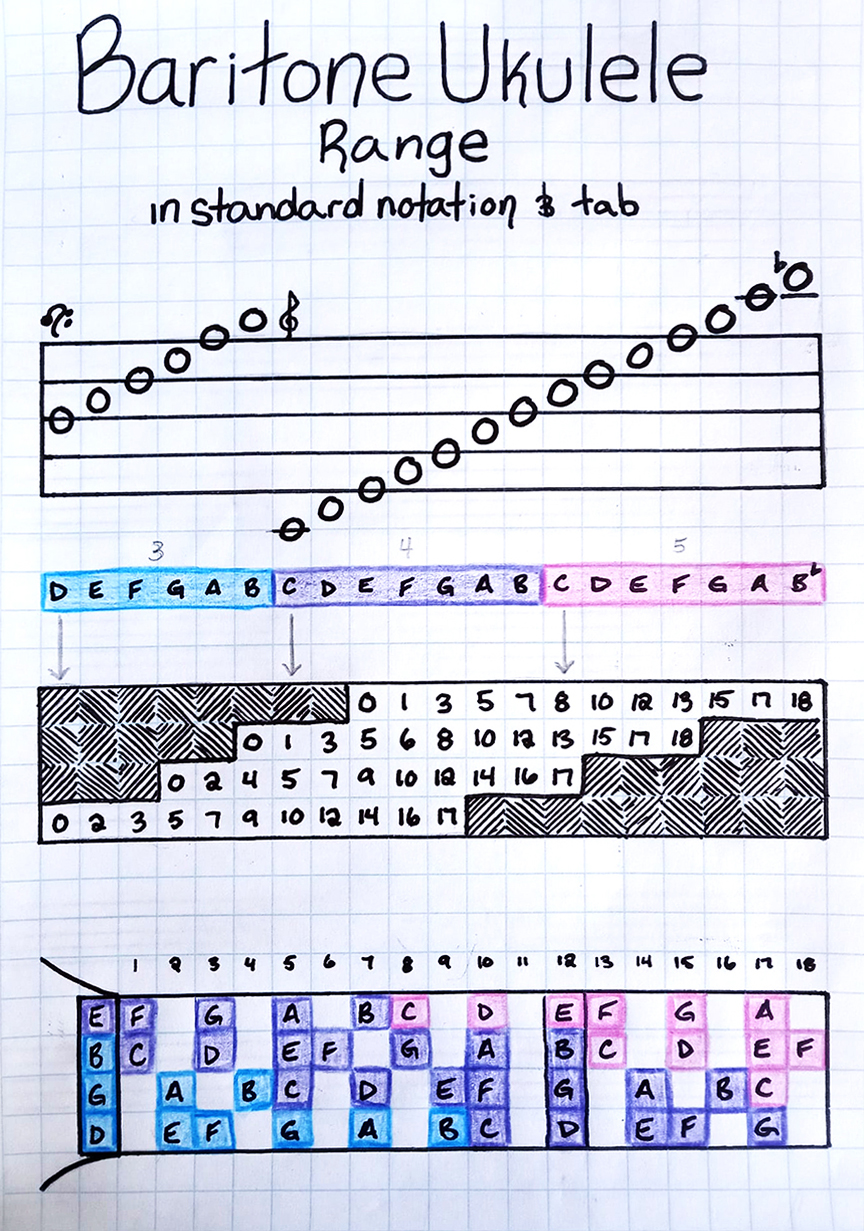 Baritone Ukulele
Range
in standard notation & tab
♭
3 4 5
D E F G A B C D E F G A B C D E F G A B♭
0 1 3 5 7 8 10 12 13 15 17 18
0 1 3 5 6 8 10 12 13 15 17 18
0 2 4 5 7 9 10 12 14 16 17
0 2 3 5 7 9 10 12 14 16 17
1 2 3 4 5 6 7 8 9 10 11 12 13 14 15 16 17 18
E F G A B C D E F G A
B C D E F G A B C D E F
G A B C D E F G A B C
D E F G A B C D E F G